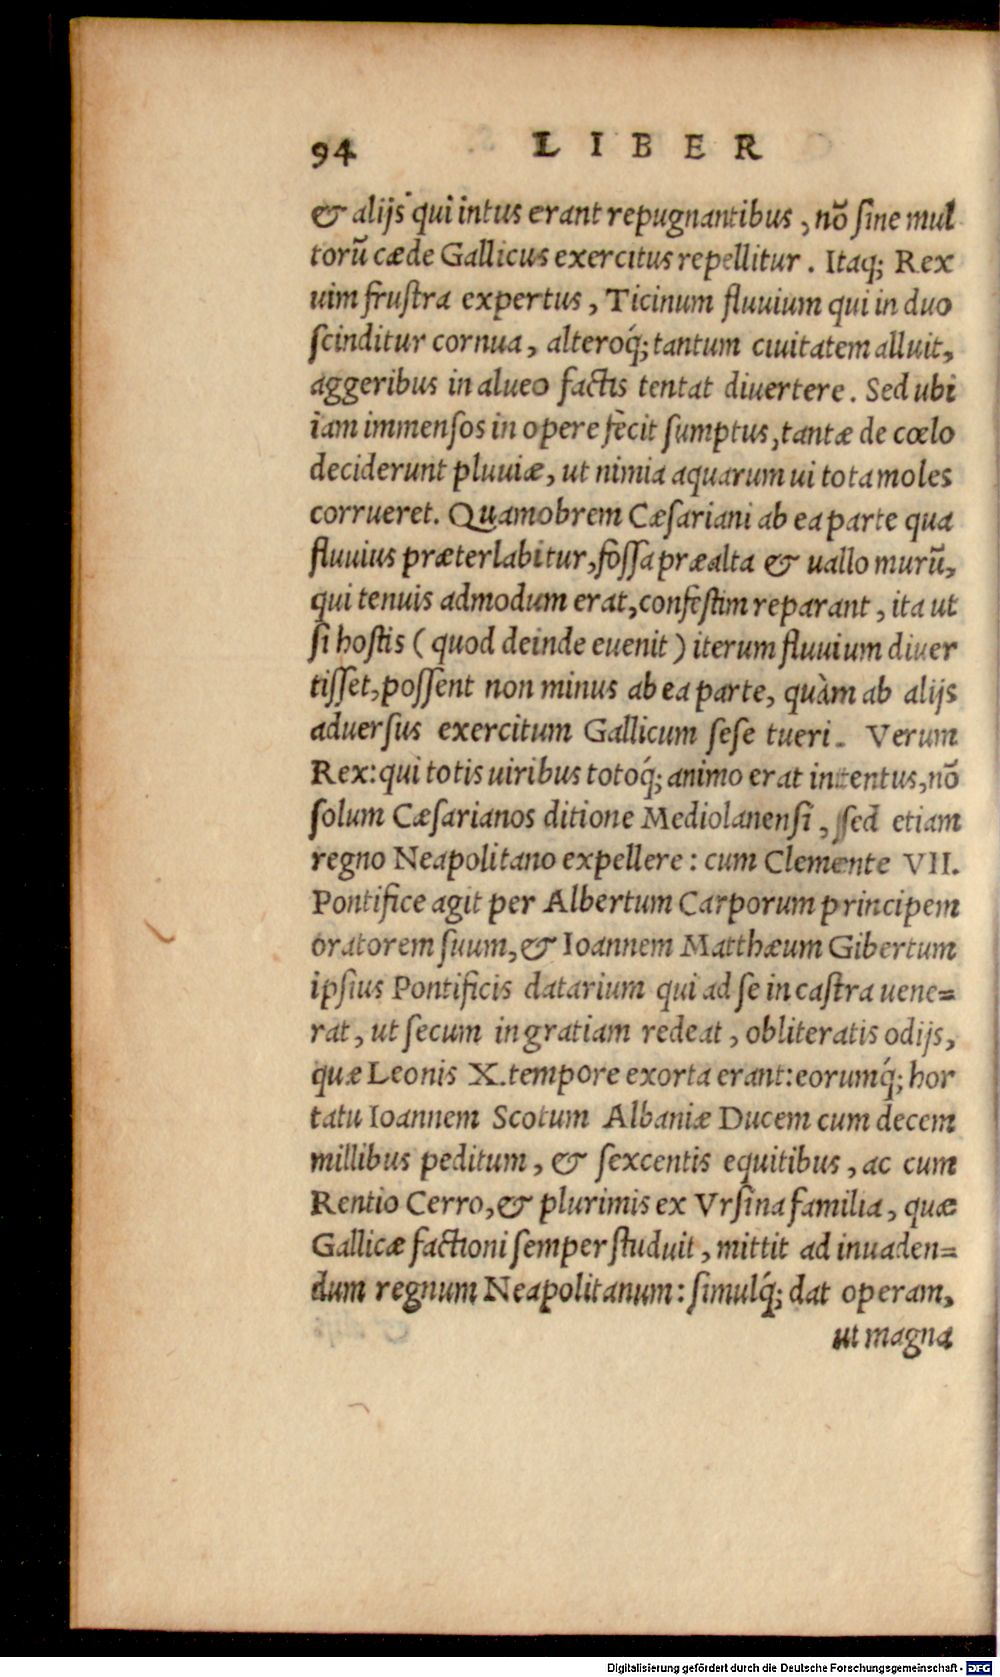 94 LIBER
& alijs qui intus erant repugnantibus, nõ ſine mul
torũ cæde Gallicus exercitus repellitur. Itaq; Rex
uim fruſtra expertus, Ticinum fluuium qui in duo
ſcinditur cornua, alteroq́; tantum ciuitatem alluit,
aggeribus in alueo factis tentat diuertere. Sed ubi
iam immenſos in opere fecit ſumptus, tantæ de cœlo
deciderunt pluuiæ, ut nimia aquarum ui tota moles
corrueret. Quamobrem Cæſariani ab ea parte qua
fluuius præterlabitur, foſſa præalta & uallo murũ,
qui tenuis admodum erat, confeſtim reparant, ita ut
ſi hoſtis (quod deinde euenit) iterum fluuium diuer
tiſſet, poſſent non minus ab ea parte, quàm ab alijs
aduerſus exercitum Gallicum ſeſe tueri. Verum
Rex: qui totis uiribus totoq́; animo erat intentus, nõ
ſolum Cæſarianos ditione Mediolanenſi, ſed etiam
regno Neapolitano expellere: cum Clemente VII.
Pontifice agit per Albertum Carporum principem
oratorem ſuum, & Ioannem Matthæum Gibertum
ipſius Pontificis datarium qui ad ſe in caſtra uene=
rat, ut ſecum in gratiam redeat, obliteratis odijs,
quæ Leonis X. tempore exorta erant: eorumq́; hor
tatu Ioannem Scotum Albaniæ Ducem cum decem
millibus peditum, & ſexcentis equitibus, ac cum
Rentio Cerro, & plurimis ex Vrſina familia, quæ
Gallicæ factioni ſemper ſtuduit, mittit ad inuaden=
dum regnum Neapolitanum: ſimulq́; dat operam,
ut magna
Digitalisierung gefördert durch die Deutsche Forschungsgemeinschaft - DFG